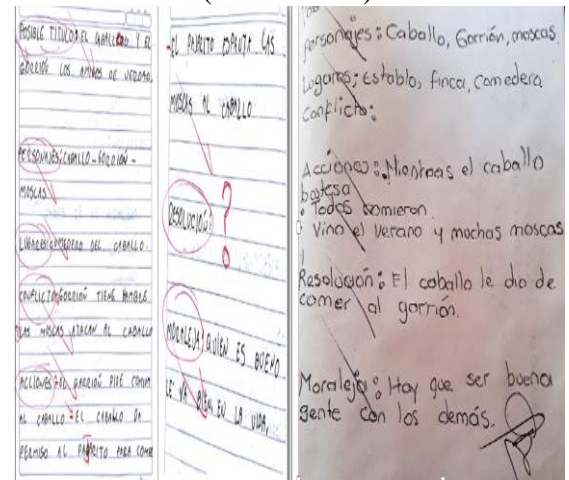 POSIBLE TITULO: EL CABALLO Y EL
GORRIÓN LOS AMIGOS DE VERDAD.
PERSONAJES: CABALLO - GORRIÓN -
MOSCAS
LUGARES: COMEDERO DEL CABALLO.
CONFLICTO: GORRIÓN TIENE HAMBRE
LAS MOSCAS ATACAN AL CABALLO
ACCIONES: EL GORRIÓN PIDE COMIDA
AL CABALLO - EL CABALLO DA
PERMISO AL PAJARITO PARA COMER
-EL PAJARITO ESPANTA LAS
MOSCAS AL CABALLO
RESOLUCIÓN:
?
MORALEJA: QUIEN ES BUENO
LE VA BIEN EN LA VIDA.
Personajes: Caballo, Gorrión, moscas.
Lugares: Establo, finca, Comedera
Conflicto:
Acciones: Mientras el caballo
bostesa
• Todos comieron.
Vino el verano y muchas moscas
Resolución: El caballo le dio de
comer al gorrión.
Moraleja: Hay que ser buena
gente con los demás.